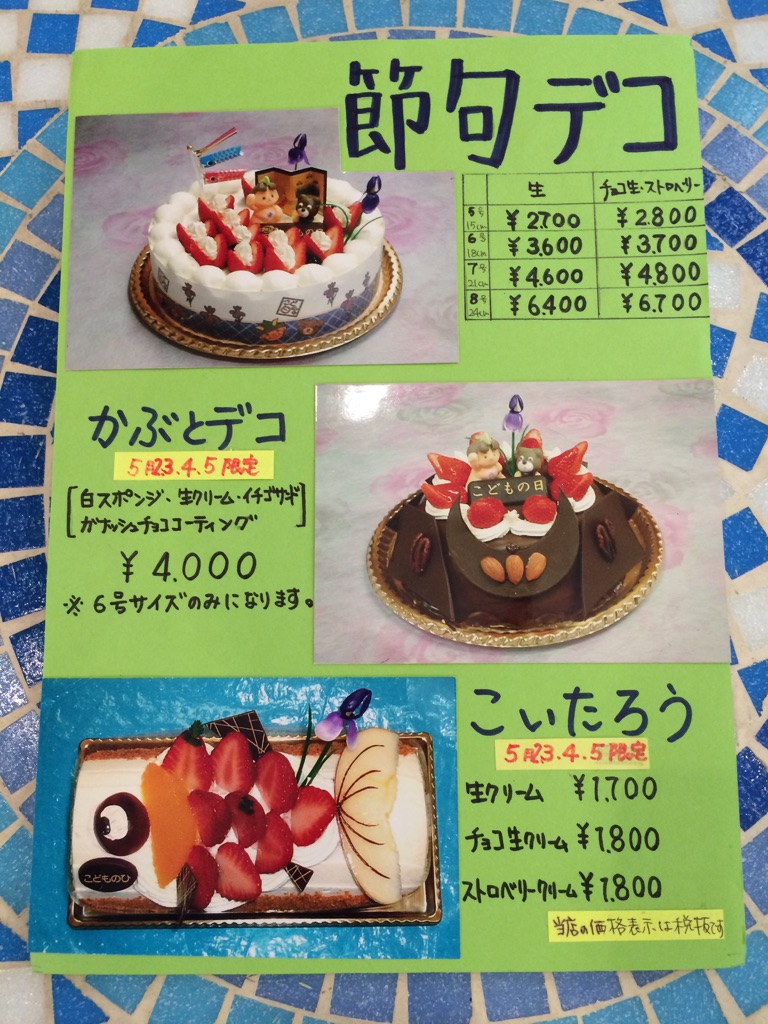 節句デコ
生 チョコ生・ストロベリー
5号 15cm ¥2.700 ¥2.800
6号 18cm ¥3.600 ¥3.700
7号 21cm ¥4.600 ¥4.800
8号 24cm ¥6.400 ¥6.700
かぶとデコ
5月2.3.4.5限定
[白スポンジ、生クリーム・イチゴサンド
ガナッシュチョココーティング]
¥4.000
※6号サイズのみになります。
こどもの日
こいたろう
5月2.3.4.5限定
生クリーム ¥1.700
チョコ生クリーム ¥1.800
ストロベリークリーム ¥1.800
こどものひ
当店の価格表示は税抜です